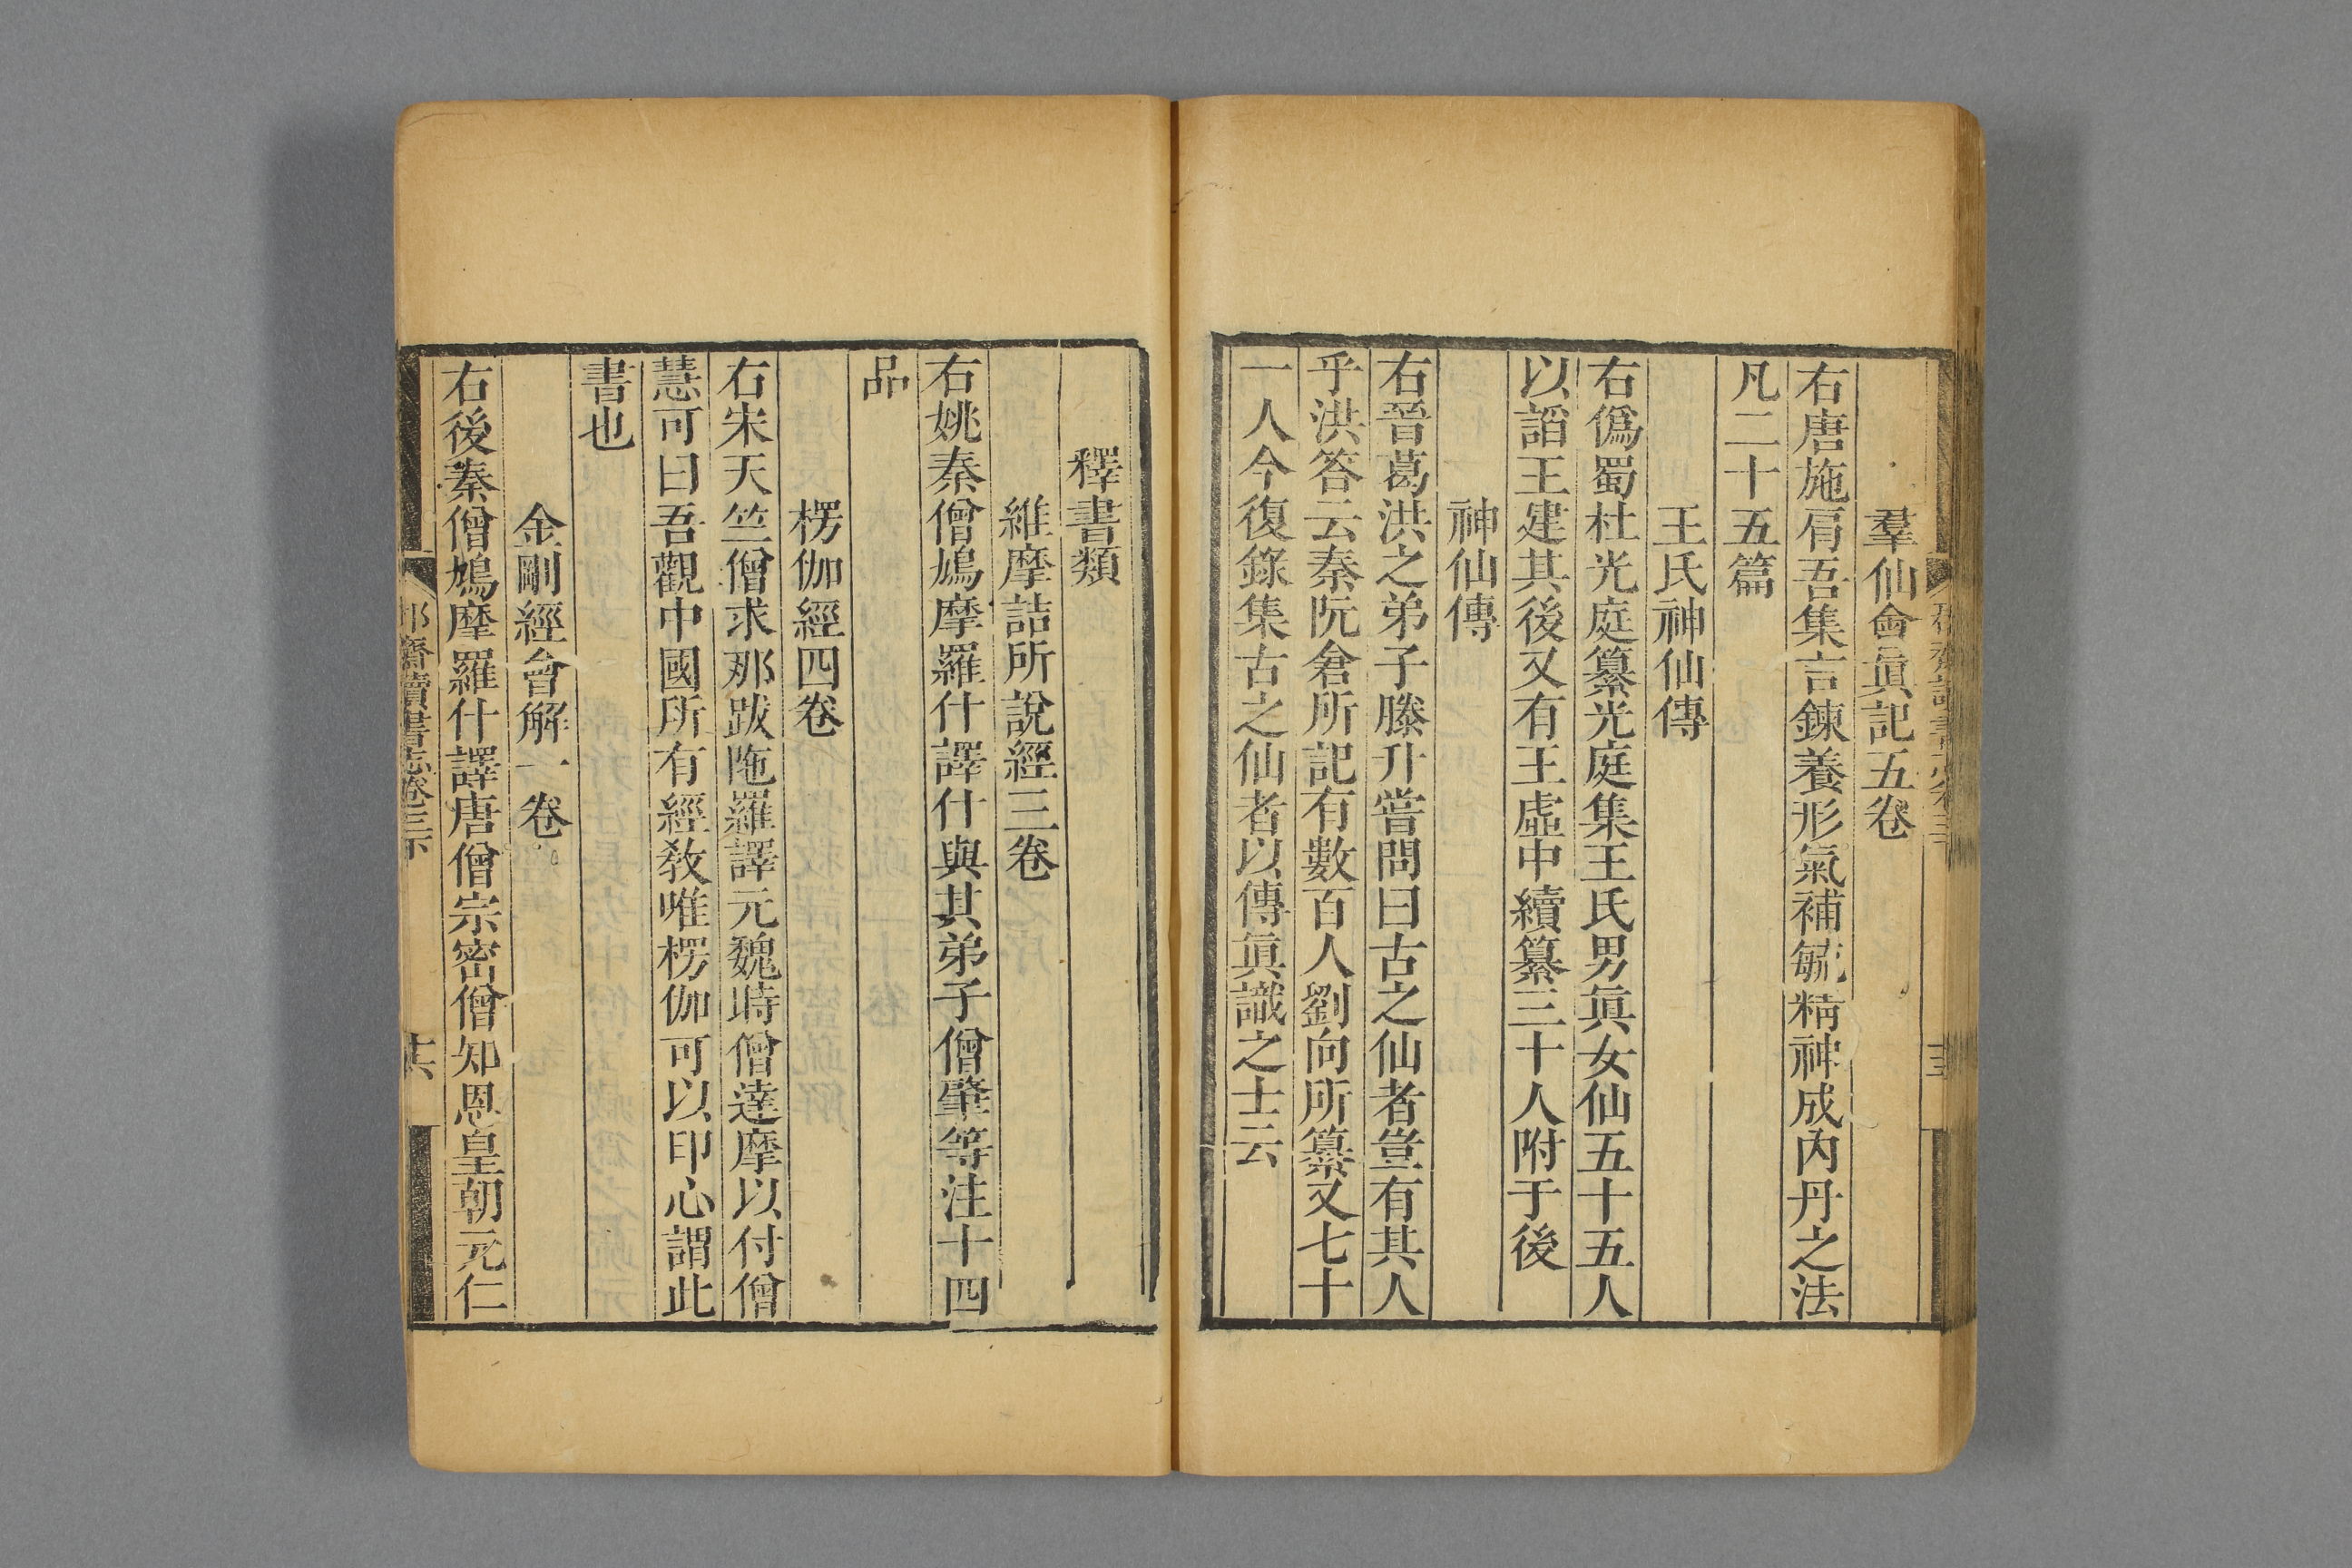 羣仙會眞記五卷
右唐施肩吾集言鍊養形氣補毓精神成內丹之法
凡二十五篇
王氏神仙傳
右僞蜀杜光庭纂光庭集王氏男眞女仙五十五人
以謟王建其後又有王虛中續纂三十人附于後
神仙傳
右晉葛洪之弟子滕升嘗問曰古之仙者豈有其人
乎洪答云秦阮倉所記有數百人劉向所纂又七十
一人今復錄集古之仙者以傳眞識之士云
釋書類
維摩詰所說經三卷
右姚秦僧鳩摩羅什譯什與其弟子僧肇等注十四
品
楞伽經四卷
右宋天竺僧求那跋陁羅譯元魏時僧達摩以付僧
慧可曰吾觀中國所有經敎唯楞伽可以印心謂此
書也
金剛經會解一卷
右後秦僧鳩摩羅什譯唐僧宗密僧知恩皇朝元仁
郡齋讀書志卷三下